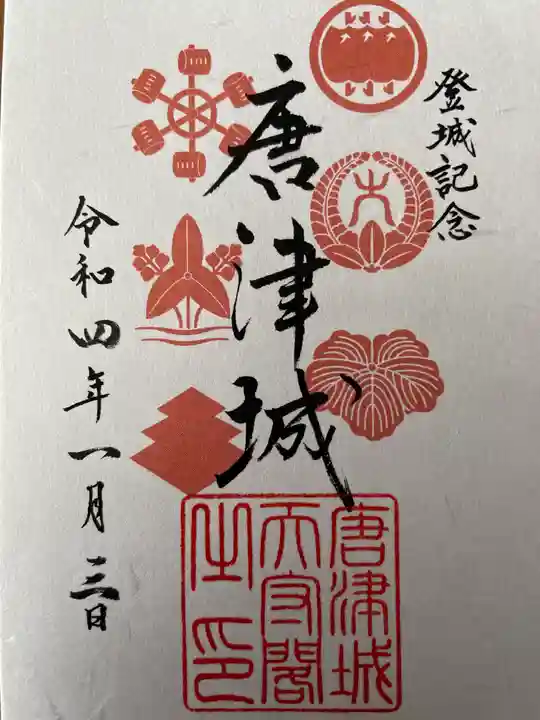 登城記念
唐津城
令和四年一月三日
唐津城
天守閣
之印